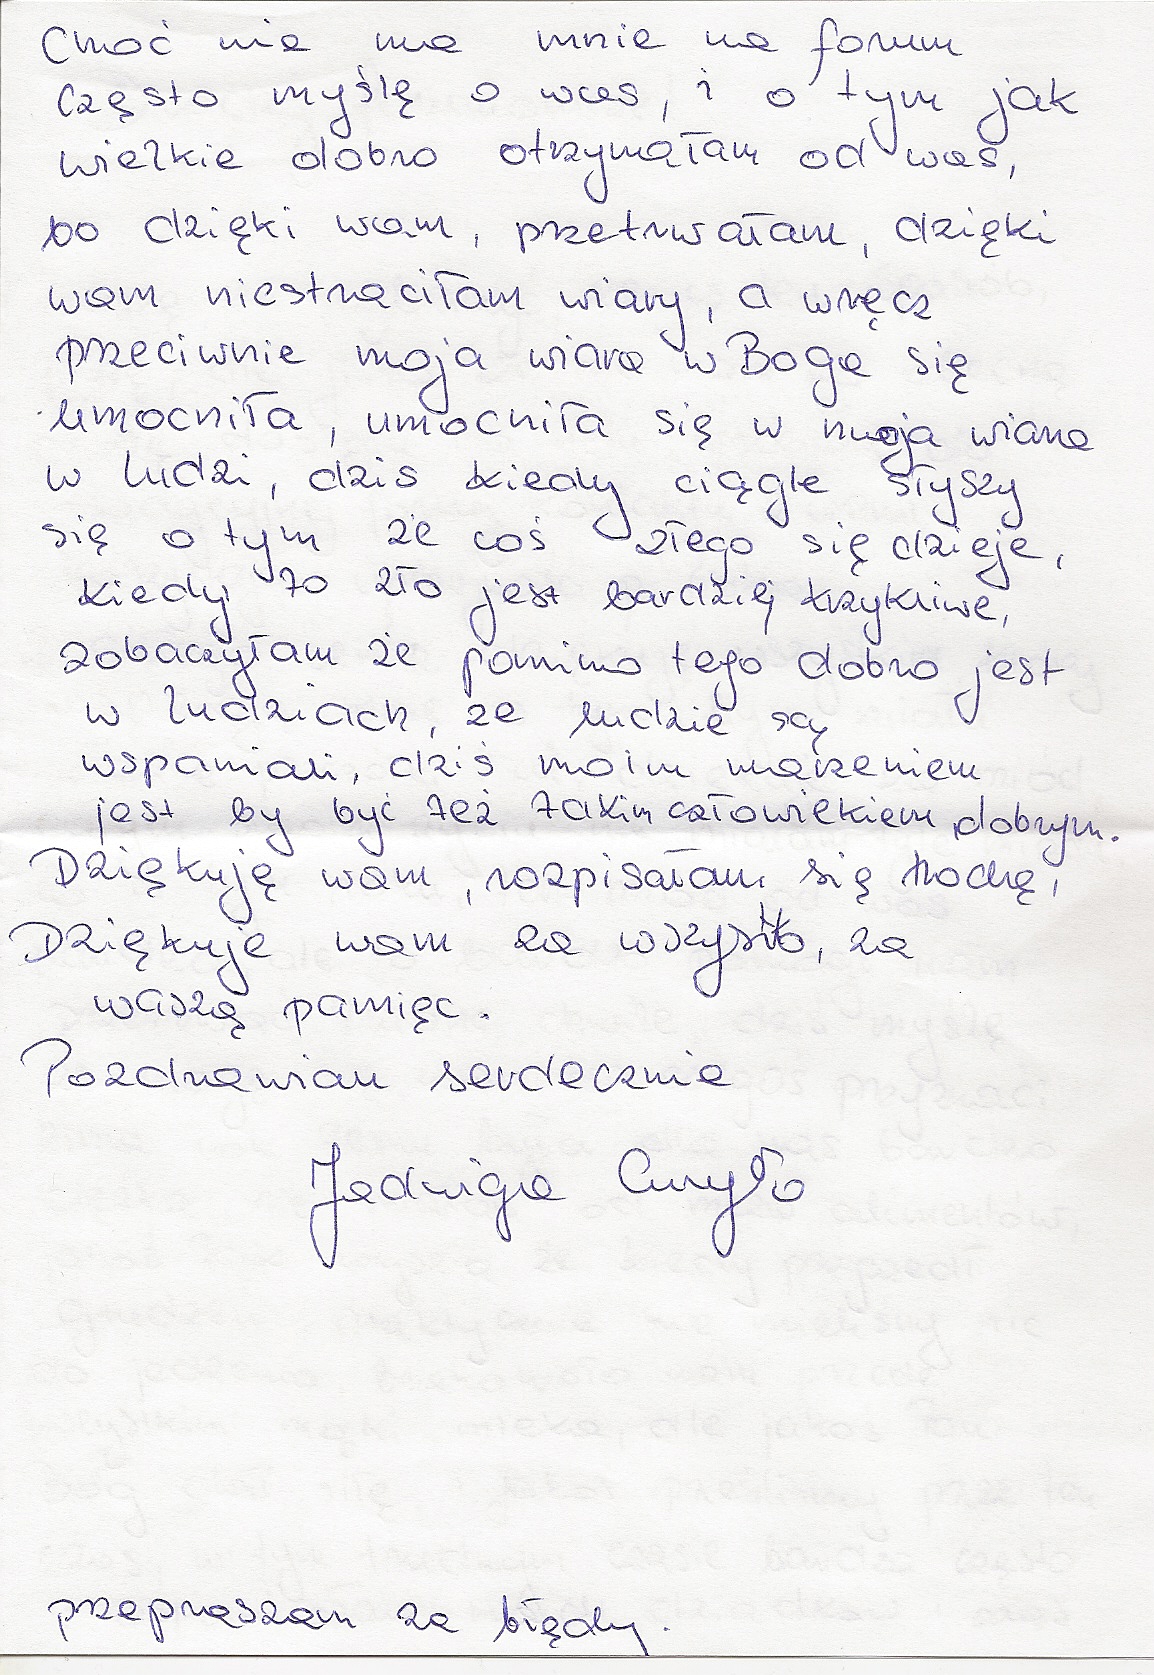 Choć nie ma mnie na forum
Często myślę o was, i o tym jak
wielkie dobro otrzymałam od was,
bo dzięki wam, przetrwałam, dzięki
wam niestraciłam wiary, a wręcz
przeciwnie moja wiara w Boga się
umocniła, umocniła się w moja wiara
w ludzi, dzis kiedy ciągle słyszy
się o tym że coś złego się dzieje,
kiedy to zło jest bardziej krzykliwe,
zobaczyłam że pomimo tego dobro jest
w ludziach, że ludzie są
wspaniali, dziś moim marzeniem
jest by być też takim człowiekiem dobrym.
Dziękuję wam, rozpisałam się trochę,
Dziękuje wam za wszystko, za
waszą pamięc.
Pozdrawiam serdecznie
Jadwiga Curyło
przepraszam za błędy.